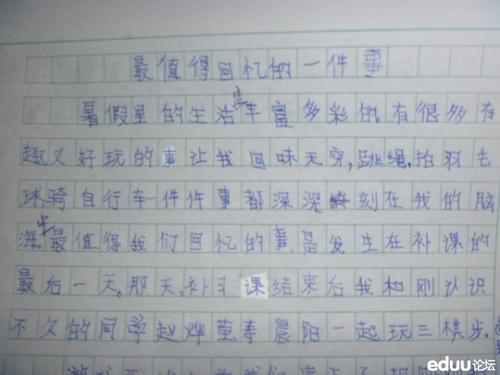 最值得回忆的一件事
暑假里的生活是丰富多彩的,有很多有
趣又好玩的事让我回味无穷,跳绳,拍羽毛
球骑自行车一件件事都深深刻在我的脑
海中最值得我们回忆的事是发生在补课的
最后一天。那天,补习课结束后我和刚认识
不久的同学赵烨萤李晨阳一起玩三棋步.
eduu论坛